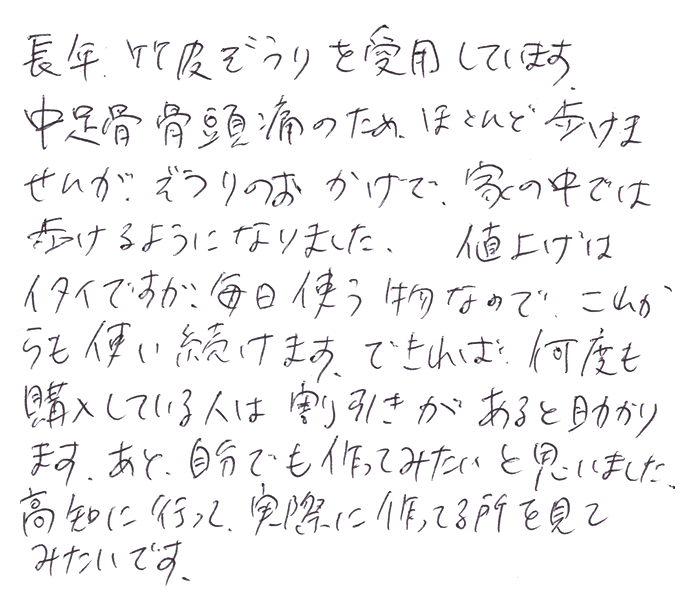 長年、竹皮ぞうりを愛用しています。
中足骨骨頭痛のため、ほとんど歩けま
せんが、ぞうりのおかげで、家の中では
歩けるようになりました、 値上げは
イタイですが、毎日使う物なので、これか
らも使い続けます、できれば、何度も
購入している人は割り引きがあると助かり
ます、あと、自分でも作ってみたいと思いました、
高知に行って、実際に作ってる所を見て
みたいです、